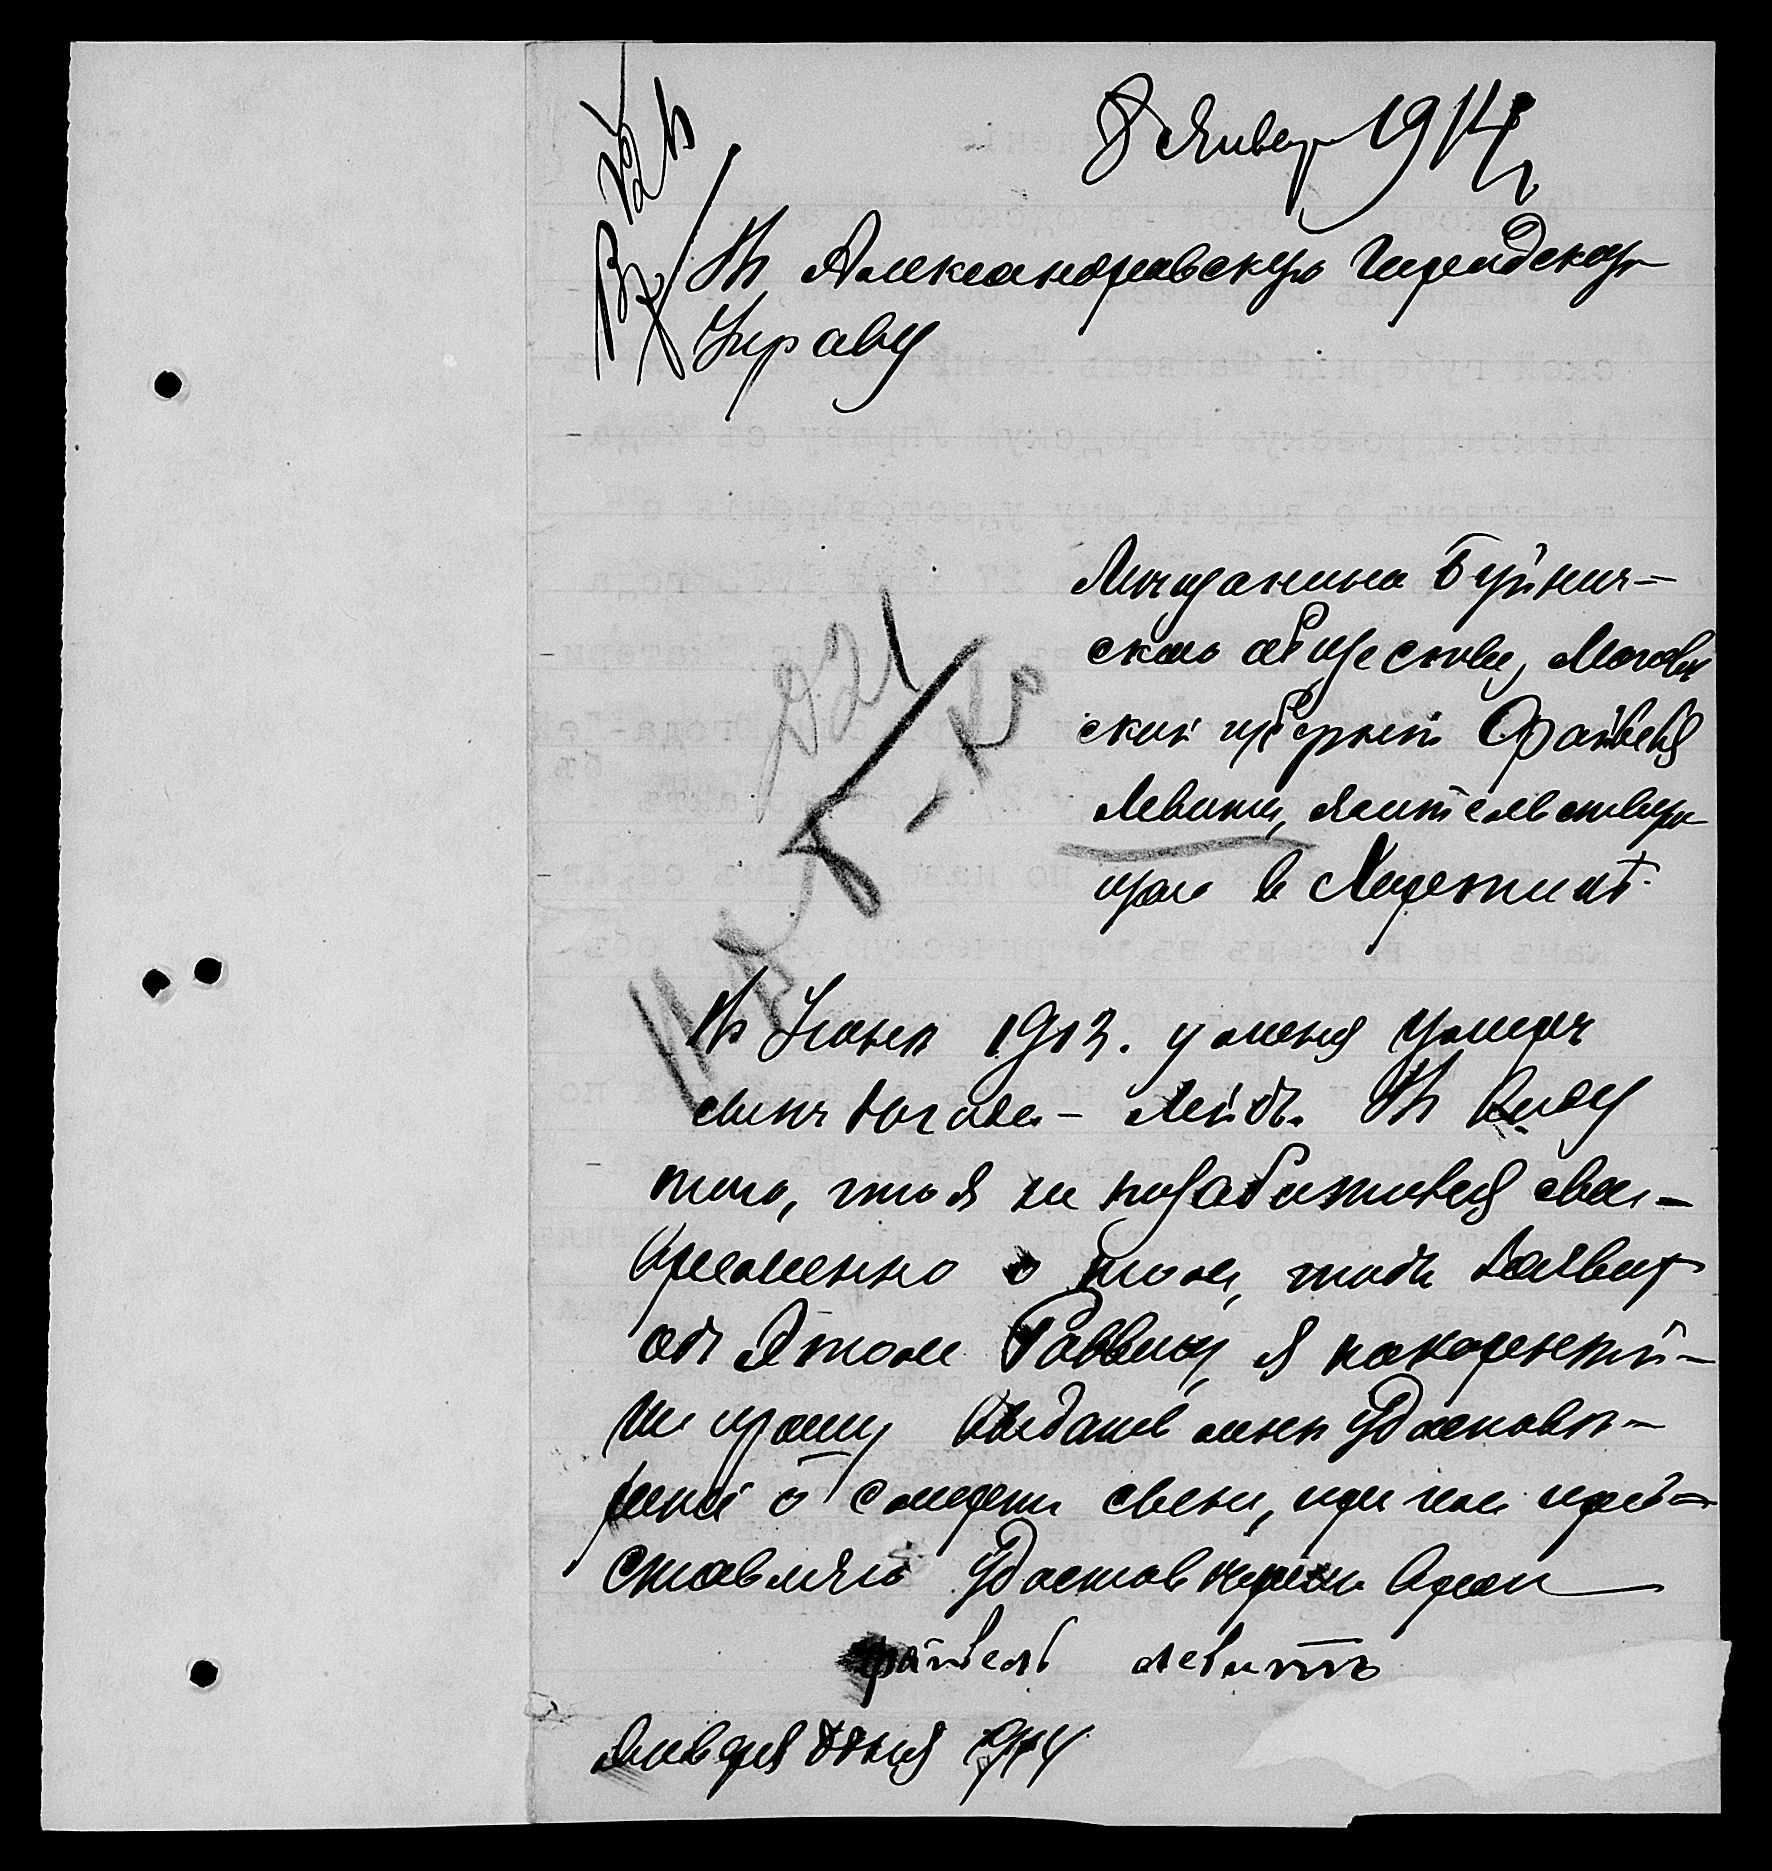 8 Январ 1914 г
Въ Александровскую Городскую
Управу
Мещанина Буйнич-
скаго общества, Могилев
ской губерніи Файвеля
Левита, жительствую
щаго в
Въ 1913. у меня умеръ
сынъ Лейба. Въ виду
того, что я не позаботился свое-
временно о томъ, чтобы заявить
объ Этомъ Раввину, я покорнѣй-
ше прошу выдать мнѣ удостовѣ-
реніе о смерти сына, при чем пред-
ставляю Удостовѣреніе врача
файвель левитъ
Января 8 дня 1914